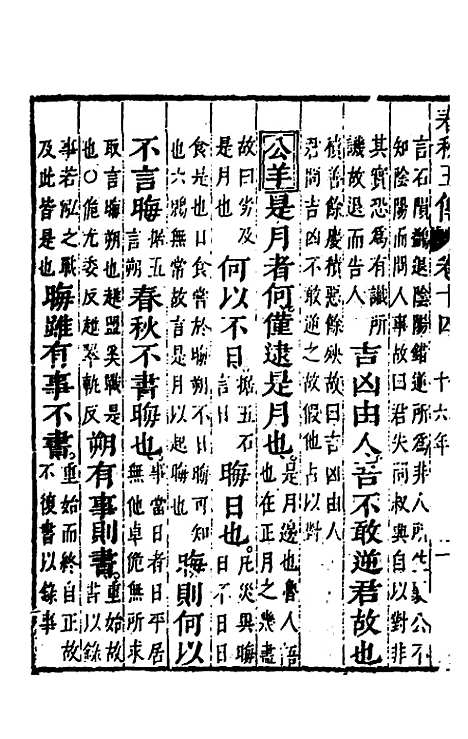 春秋五傳 卷十四 十六年 一
言石隕鷁退陰陽錯逆所爲非人所生襄公不
知陰陽而問人事故曰君失問叔興自以對非
其實恐爲有識所
譏故退而告人
吉凶由人吾不敢逆君故也
積善餘慶積惡餘殃故曰吉凶由人
君問吉凶不敢逆之故假他占以對
公羊是月者何僅逮是月也
是月邊也魯人語
也在正月之幾盡
故曰劣及
是月也
何以不日
據五石
言日
晦日也
凡災異晦
日不日日
食是也日食嘗於晦朔不日晦可知
也六鷁無常故言是月以起晦也
晦則何以
不言晦
據五
言朔
春秋不書晦也
事當日者日平居
無他卓佹無所求
取言晦朔也趙盟奚戰是
也〇佹尤委反趙翠軌反
朔有事則書
重始故
書以錄
事若泓之戰
及此皆是也
晦雖有事不書
重始而終自正故
不復書以錄事